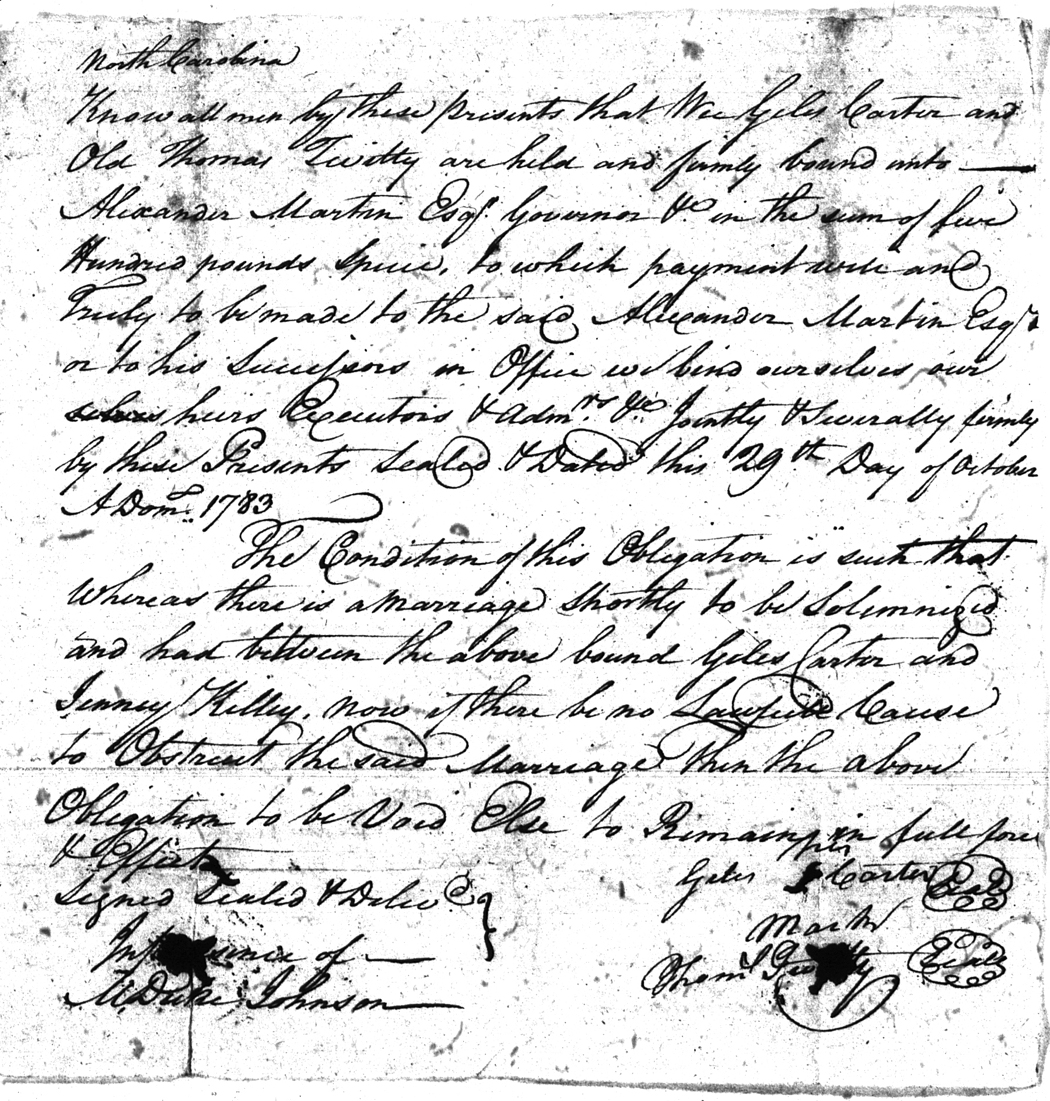 North Carolina
Know all men by these presents that Wee Giles Carter and
Old Thomas Twitty are held and firmly bound unto
Alexander Martin Esqr. Governor &c in the sum of five
Hundred pounds Specie, to which payment well and
Truly to be made to the said Alexander Martin Esqr
or to his Successors in Office we bind ourselves our
heirs Executors & Admrs &c Jointly & Severally firmly
by these Presents Sealed & Dated this 29th Day of October
A Dom: 1783
The Condition of this Obligation is such that
Whereas there is a Marriage Shortly to be Solemnized
and had between the above bound Giles Carter and
Jenney Kelley, now if there be no Lawfull Cause
to Obstruct the said Marriage then the above
Obligation to be Void Else to Remain in full force
& Effect
Signed Sealed & Delivd
In presence of
M. Duke Johnson
his
Giles Carter Seal
Mark
Thoms Twitty Seal